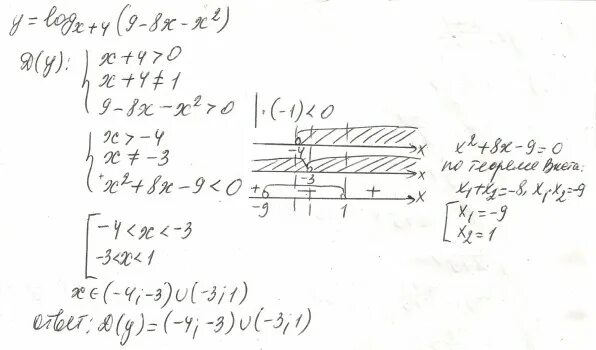 y = log_{x+4} (9-8x-x²)
D(y): { x+4>0
x+4≠1
9-8x-x²>0 |·(-1)<0
{ x>-4
x≠-3
x²+8x-9<0
-4 x
-3 x
+ -9 + 1 + x
x²+8x-9=0
по теореме Виета:
x₁+x₂=-8, x₁·x₂=-9
[ x₁=-9
x₂=1
[ -4<x<-3
-3<x<1
x∈(-4;-3)∪(-3;1)
ответ: D(y)=(-4;-3)∪(-3;1)